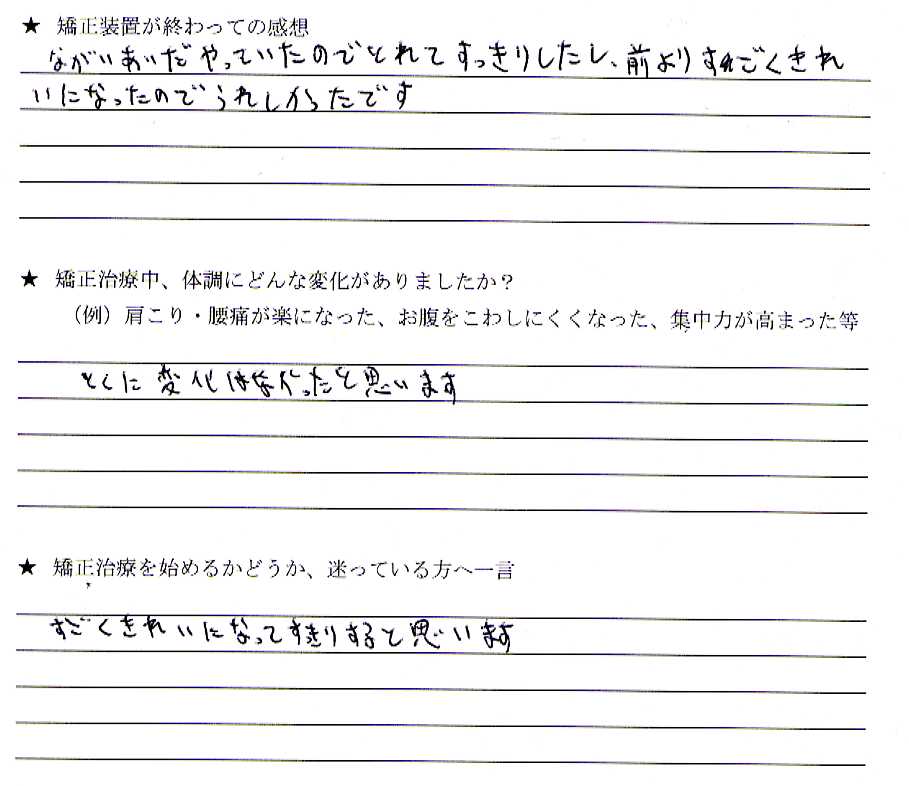 ★ 矯正装置が終わっての感想
ながいあいだやっていたのでとれてすっきりしたし、前よりすごくきれ
いになったのでうれしかったです
★ 矯正治療中、体調にどんな変化がありましたか？
（例）肩こり・腰痛が楽になった、お腹をこわしにくくなった、集中力が高まった等
とくに変化はなかったと思います
★ 矯正治療を始めるかどうか、迷っている方へ一言
すごくきれいになってすっきりすると思います